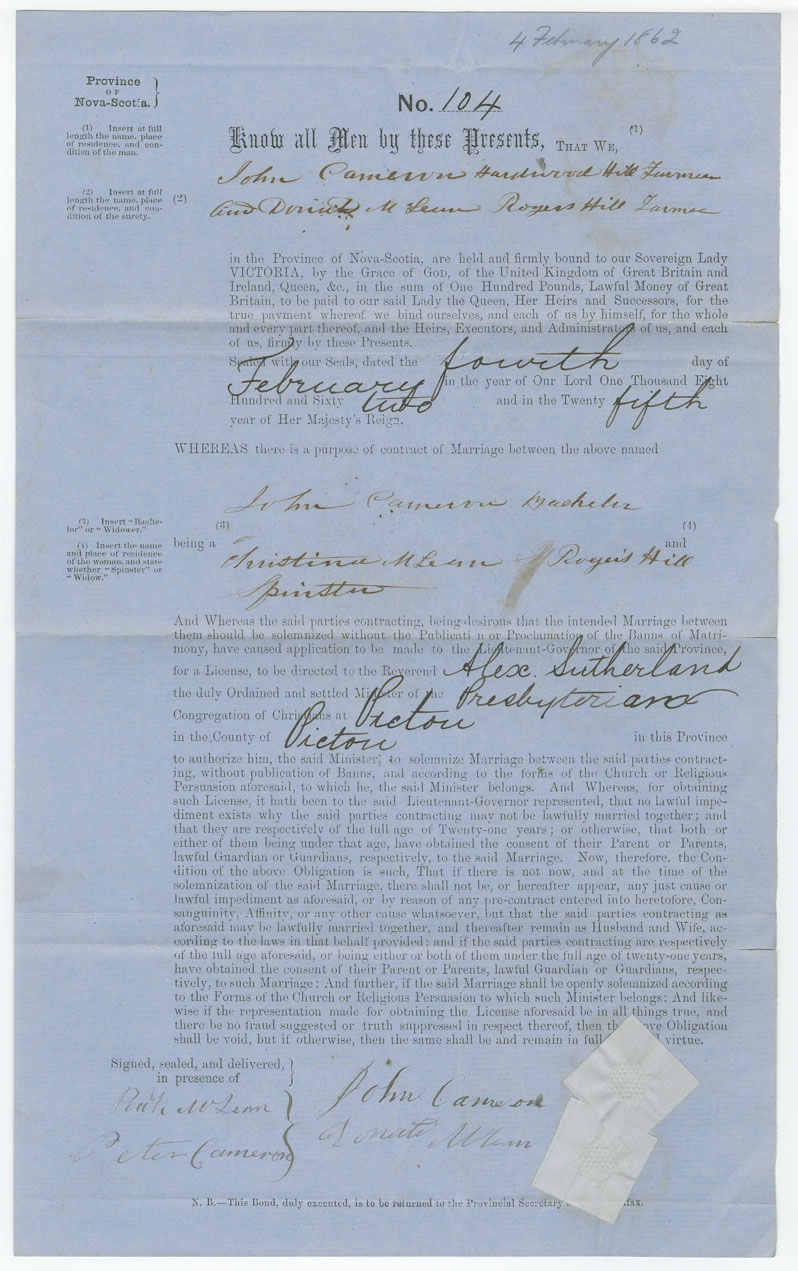 4 February 1862
Province
OF
Nova-Scotia.
No. 104
(1) Insert at full
length the name, place
of residence, and con-
dition of the man.
Know all Men by these Presents, THAT WE, (1)
John Cameron Hardwood Hill Farmer
(2) Insert at full
length the name, place
of residence, and con-
dition of the surety.
(2) and Donald McLean Rogers Hill Farmer
in the Province of Nova-Scotia, are held and firmly bound to our Sovereign Lady
VICTORIA, by the Grace of GOD, of the United Kingdom of Great Britain and
Ireland, Queen, &c., in the sum of One Hundred Pounds, Lawful Money of Great
Britain, to be paid to our said Lady the Queen, Her Heirs and Successors, for the
true payment whereof we bind ourselves, and each of us by himself, for the whole
and every part thereof, and the Heirs, Executors, and Administrators of us, and each
of us, firmly by these Presents.
Sealed with our Seals, dated the fourth day of
February in the year of Our Lord One Thousand Eight
Hundred and Sixty two and in the Twenty fifth
year of Her Majesty's Reign.
WHEREAS there is a purpose of contract of Marriage between the above named
John Cameron Bachelor
(3) Insert "Bache-
lor" or "Widower."
(4) Insert the name
and place of residence
of the woman, and state
whether "Spinster" or
"Widow."
(3) (4)
being a and
Christina McLean of Roger's Hill
Spinster
And Whereas the said parties contracting, being desirous that the intended Marriage between
them should be solemnized without the Publicati n or Proclamation of the Banns of Matri-
mony, have caused application to be made to the Lieutenant-Governor of the said Province,
for a License, to be directed to the Reverend Alex. Sutherland
the duly Ordained and settled Minister of the Presbyterian
Congregation of Christians at Pictou
in the County of Pictou in this Province
to authorize him, the said Minister, to solemnize Marriage between the said parties contract-
ing, without publication of Banns, and according to the forms of the Church or Religious
Persuasion aforesaid, to which he, the said Minister belongs. And Whereas, for obtaining
such License, it hath been to the said Lieutenant-Governor represented, that no lawful impe-
diment exists why the said parties contracting may not be lawfully married together; and
that they are respectively of the full age of Twenty-one years; or otherwise, that both or
either of them being under that age, have obtained the consent of their Parent or Parents,
lawful Guardian or Guardians, respectively, to the said Marriage. Now, therefore, the Con-
dition of the above Obligation is such, That if there is not now, and at the time of the
solemnization of the said Marriage, there shall not be, or hereafter appear, any just cause or
lawful impediment as aforesaid, or by reason of any pre-contract entered into heretofore, Con-
sanguinity, Affinity, or any other cause whatsoever, but that the said parties contracting as
aforesaid may be lawfully married together, and thereafter remain as Husband and Wife, ac-
cording to the laws in that behalf provided; and if the said parties contracting are respectively
of the full age aforesaid, or being either or both of them under the full age of twenty-one years,
have obtained the consent of their Parent or Parents, lawful Guardian or Guardians, respec-
tively, to such Marriage: And further, if the said Marriage shall be openly solemnized according
to the Forms of the Church or Religious Persuasion to which such Minister belongs: And like-
wise if the representation made for obtaining the License aforesaid be in all things true, and
there be no fraud suggested or truth suppressed in respect thereof, then th ve Obligation
shall be void, but if otherwise, then the same shall be and remain in full virtue.
Signed, sealed, and delivered,
in presence of
McLean
Peter Cameron
John Cameron
Donald McLean
N. B.—This Bond, duly executed, is to be returned to the Provincial Secretary fax.